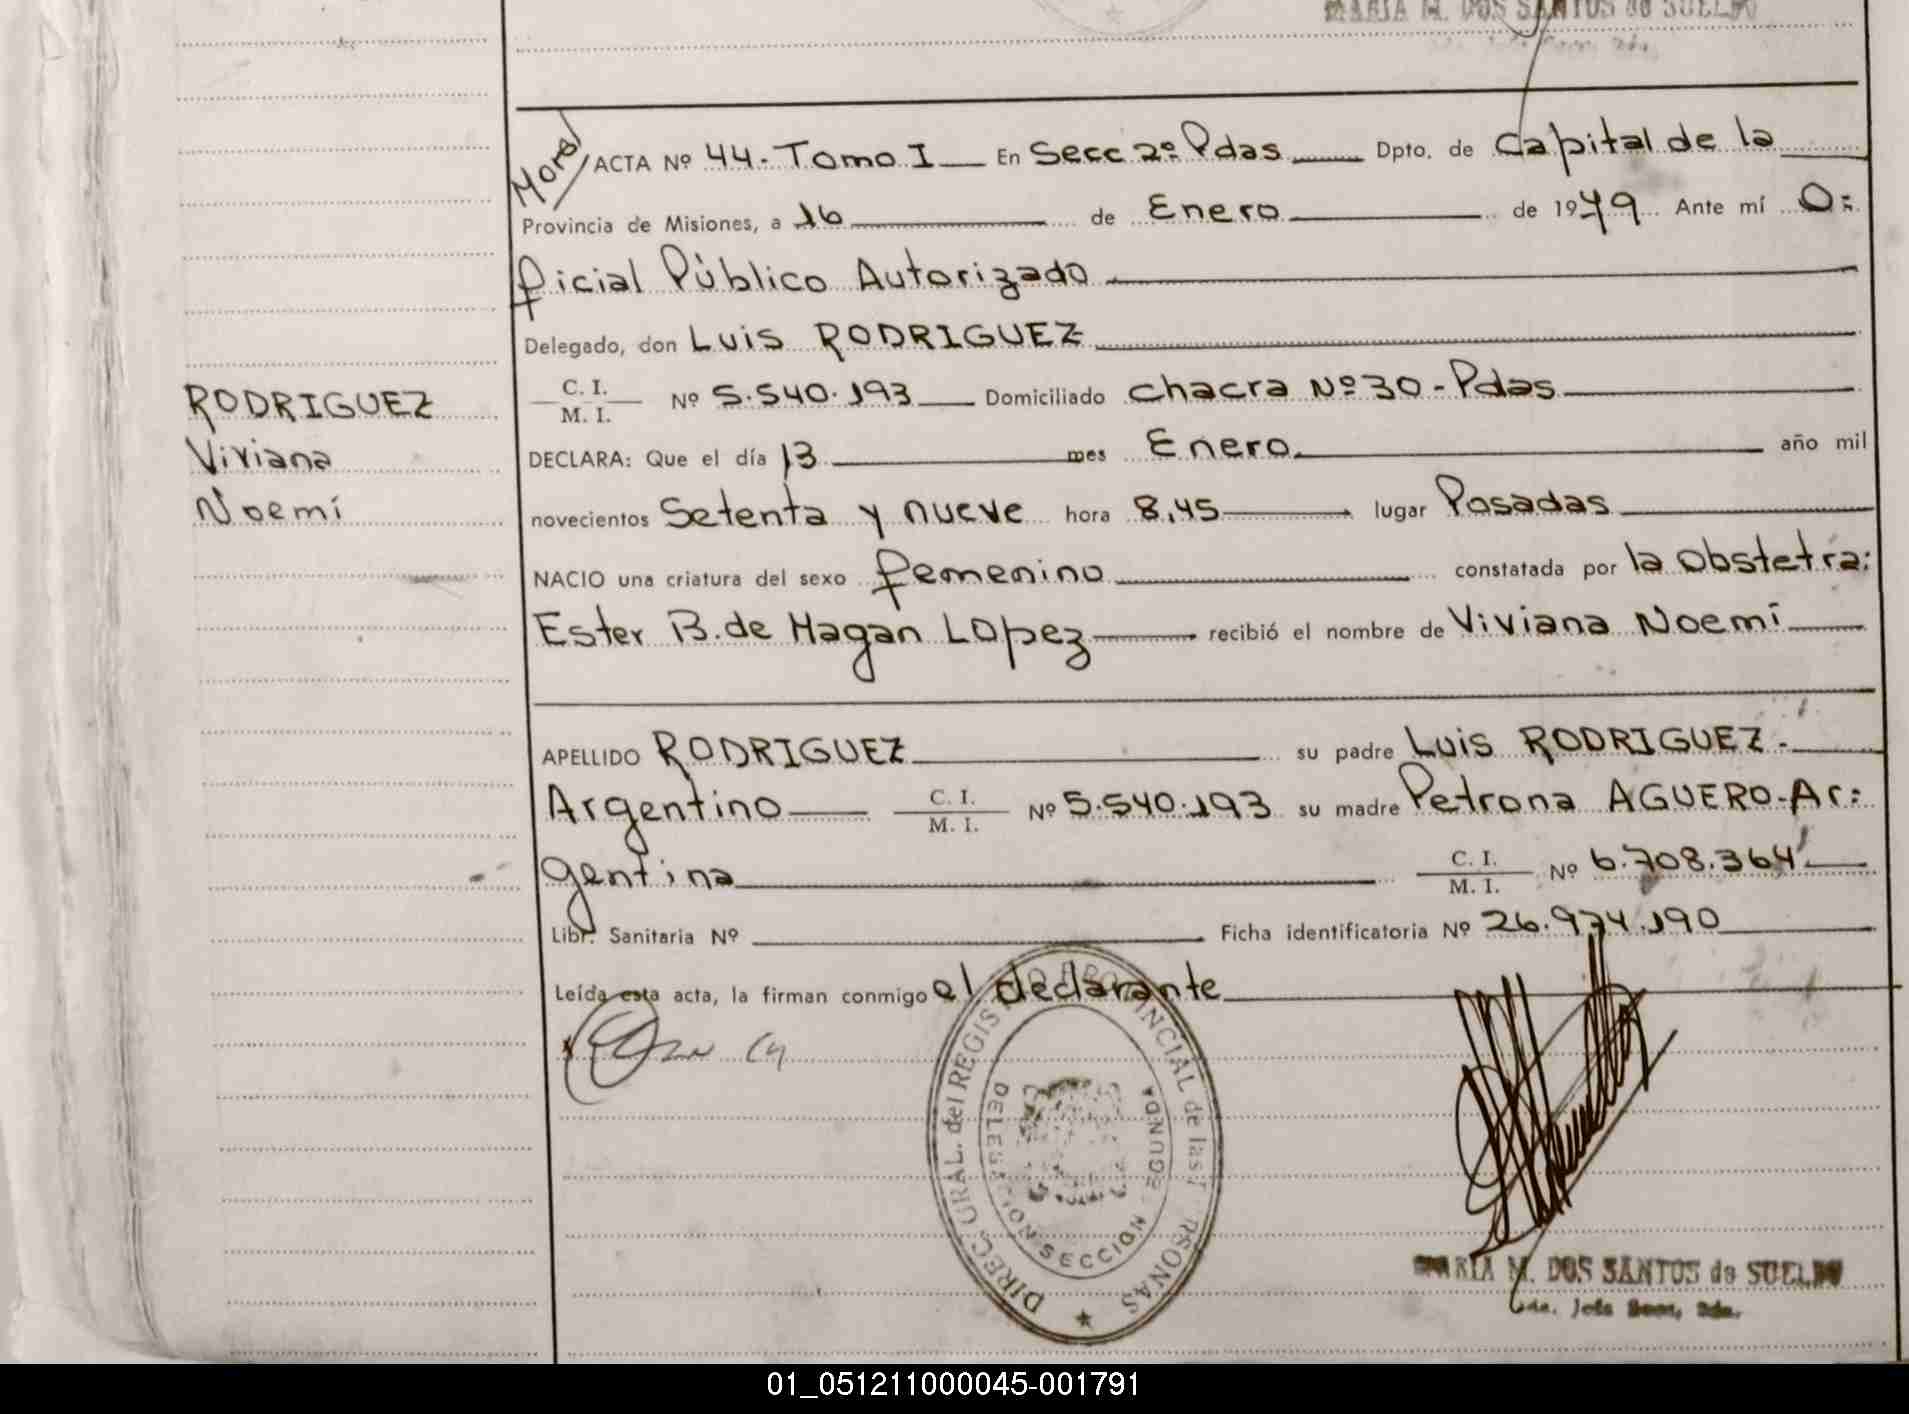 MARIA M. DOS SANTOS de SUELDO
ACTA Nº 44- Tomo I En Secc 2º Pdas Dpto. de Capital de la
Provincia de Misiones, a 16 de Enero de 1979 Ante mí O=
ficial Público Autorizado
Delegado, don Luis RODRIGUEZ
C. I.
M. I. Nº 5.540.193 Domiciliado Chacra Nº 30 - Pdas
RODRIGUEZ
Viviana
Noemí
DECLARA: Que el día 13 mes Enero año mil
novecientos Setenta y nueve hora 8,45 lugar Posadas
NACIO una criatura del sexo femenino constatada por la Obstetra:
Ester B. de Hagan Lopez recibió el nombre de Viviana Noemí
APELLIDO RODRIGUEZ su padre Luis RODRIGUEZ.
Argentino C. I.
M. I. Nº 5.540.193 su madre Petrona AGUERO-Ar=
gentina C. I.
M. I. Nº 6.708.364
Libr. Sanitaria Nº Ficha identificatoria Nº 26.974.190
Leída esta acta, la firman conmigo el declarante
DIREC. GRAL. del REGISTRO PROVINCIAL de las PERSONAS
DELEGACION SECCION SEGUNDA
MARIA M. DOS SANTOS de SUELDO
01_051211000045-001791